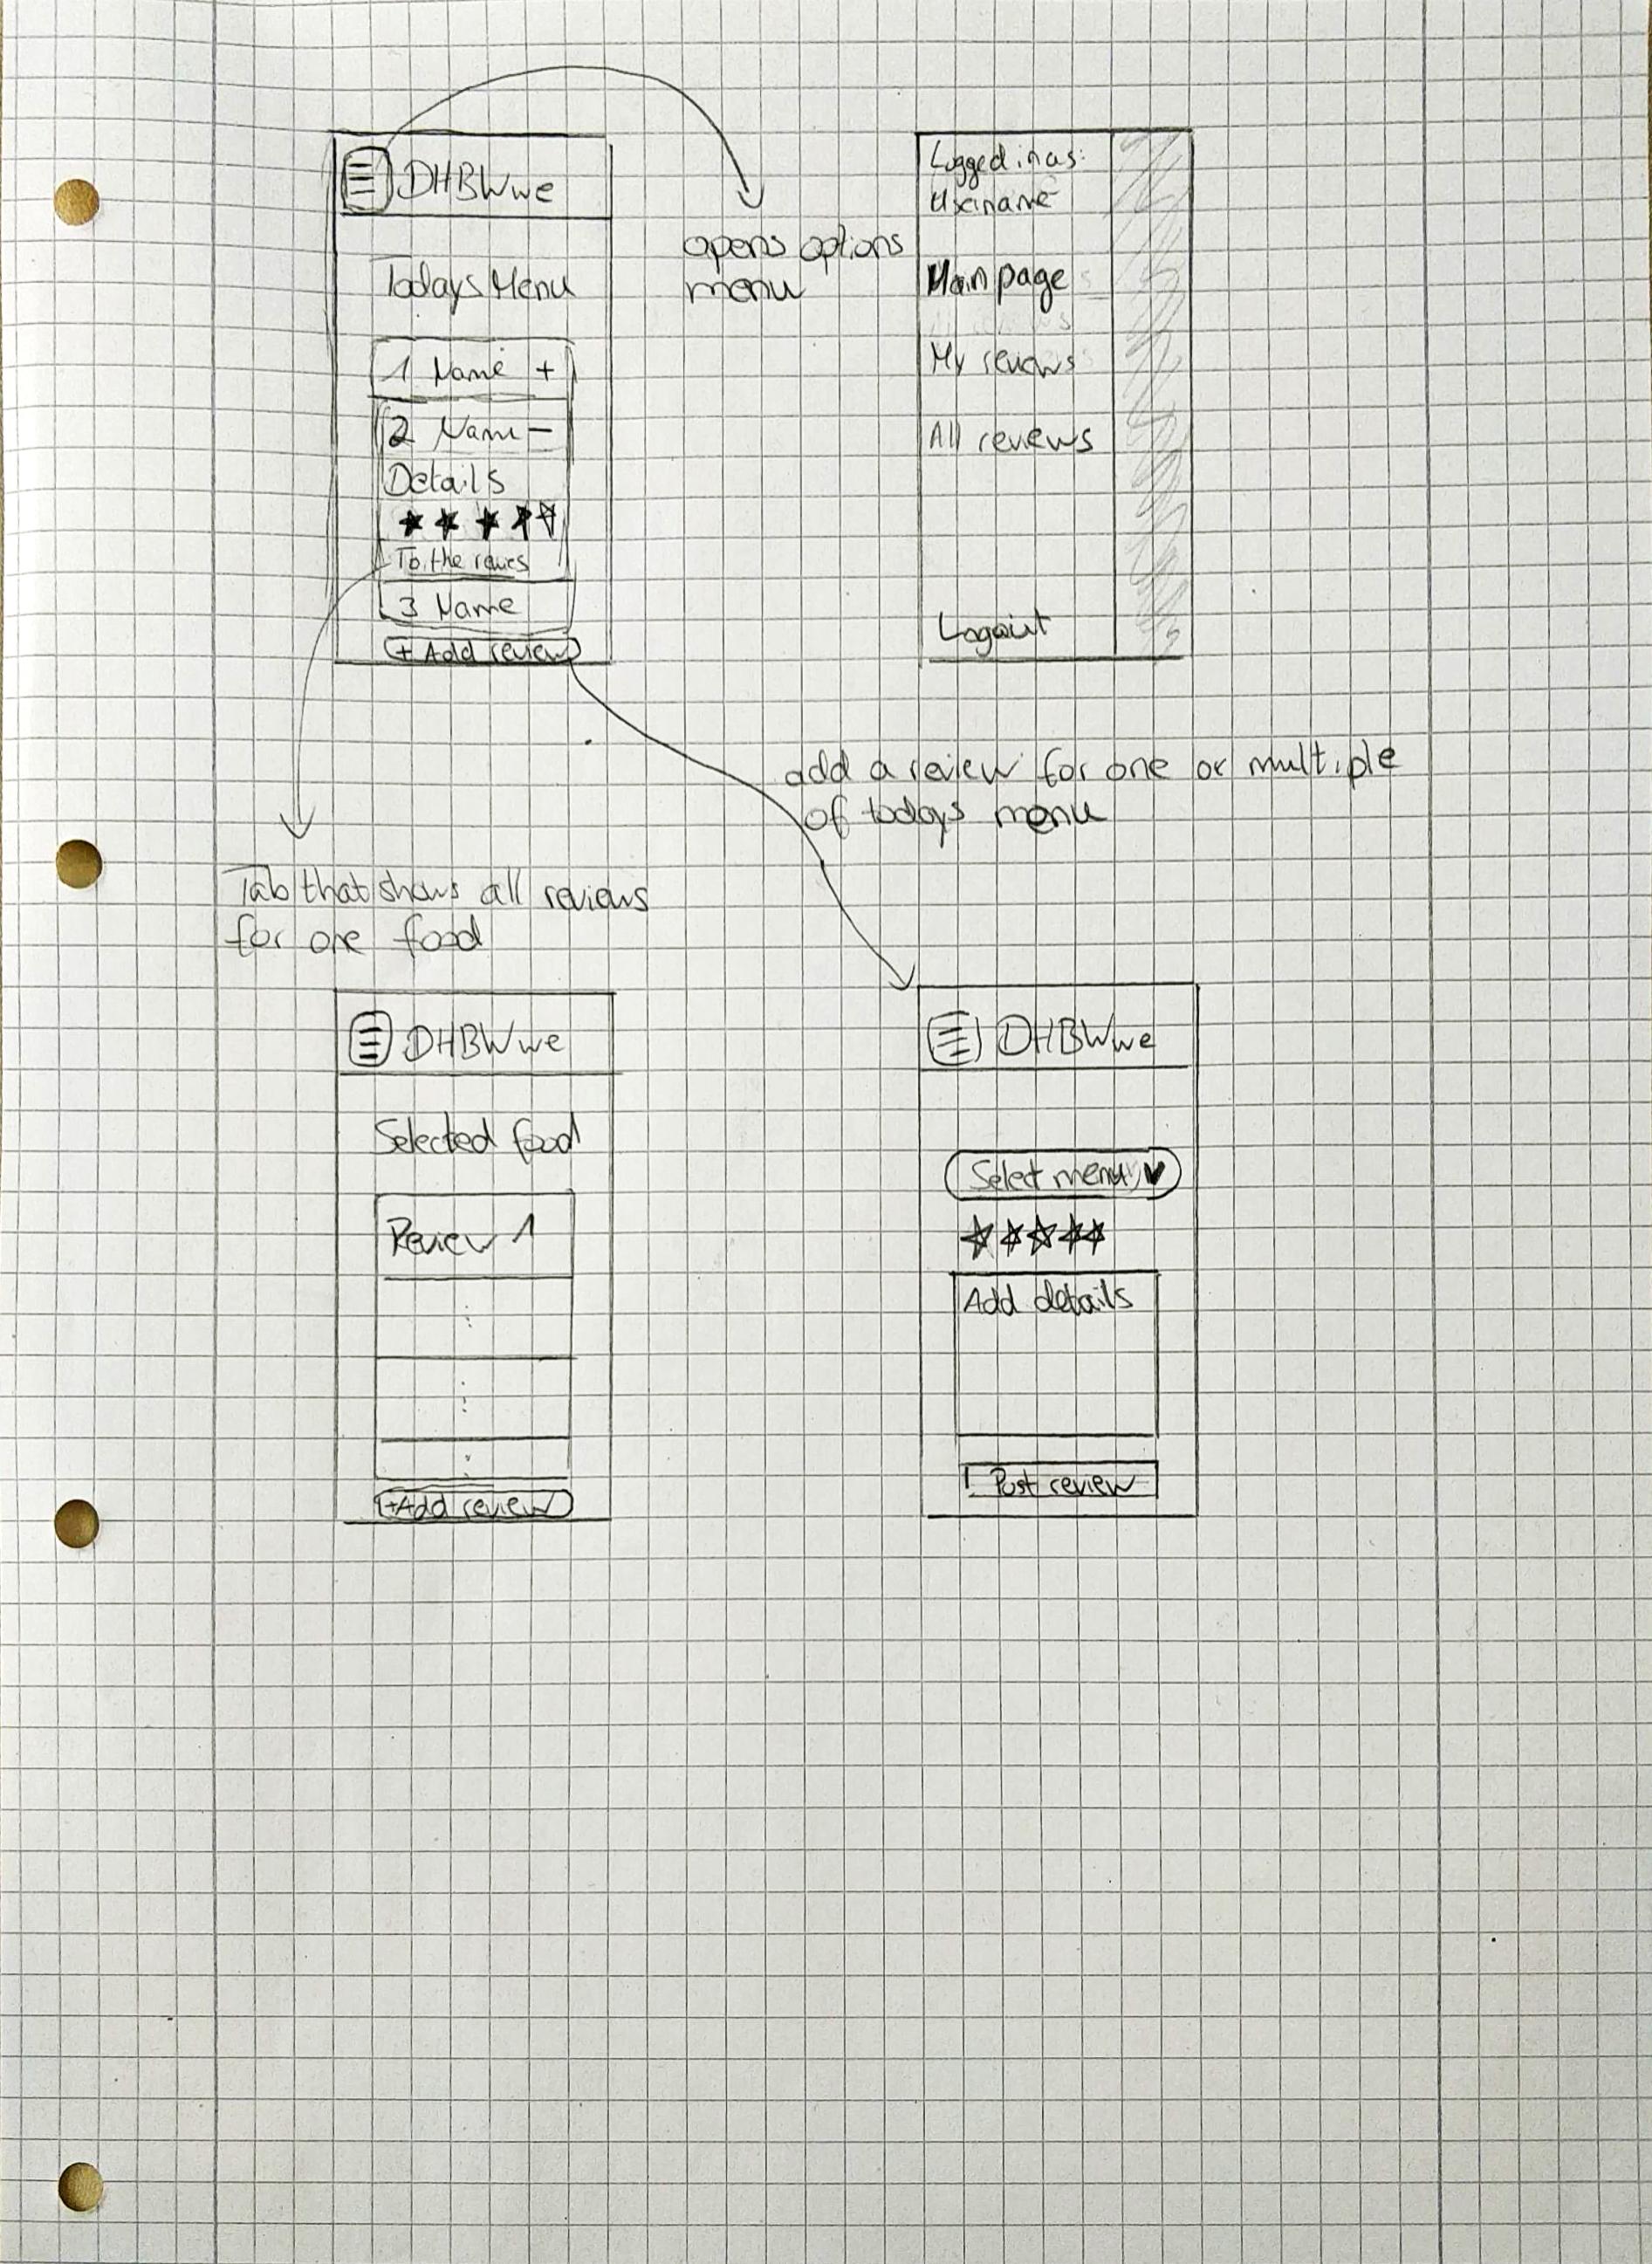 DHBWwe
Todays Menu
1 Name +
2 Name −
Details
To the
3 Name
+ Add review
opens options
menu
Logged in as:
Username
Main page
My reviews
All reviews
Logout
add a review for one or multiple
of todays menu
Tab that shows all reviews
for one food
DHBWwe
Selected food
Review 1
+Add review
DHBWwe
Select menu
Add details
Post review